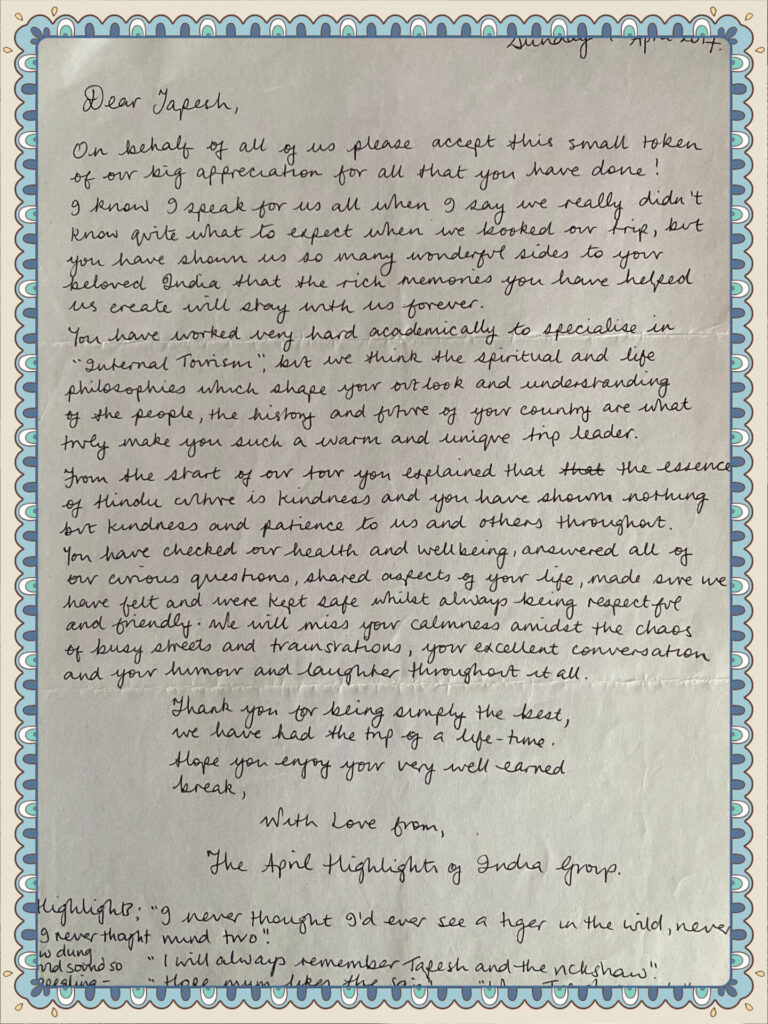 Sunday April 2017.
Dear Tapesh,
On behalf of all of us please accept this small token
of our big appreciation for all that you have done!
I know I speak for us all when I say we really didn't
know quite what to expect when we booked our trip, but
you have shown us so many wonderful sides to your
beloved India that the rich memories you have helped
us create will stay with us forever.
You have worked very hard academically to specialise in
"Internal Tourism", but we think the spiritual and life
philosophies which shape your outlook and understanding
of the people, the history and future of your country are what
truly make you such a warm and unique trip leader.
From the start of our tour you explained that that the essence
of Hindu culture is kindness and you have shown nothing
but kindness and patience to us and others throughout.
You have checked our health and wellbeing, answered all of
our curious questions, shared aspects of your life, made sure we
have felt and were kept safe whilst always being respectful
and friendly. We will miss your calmness amidst the chaos
of busy streets and trainstations, your excellent conversation
and your humour and laughter throughout it all.
Thank you for being simply the best,
we have had the trip of a life-time.
Hope you enjoy your very well earned
break,
With Love from,
The April Highlights of India Group.
Highlights; "I never thought I'd ever see a tiger in the wild, never
I never thought mind two".
dung
sound so "I will always remember Tapesh and the rickshaw".
"Hope mum likes the